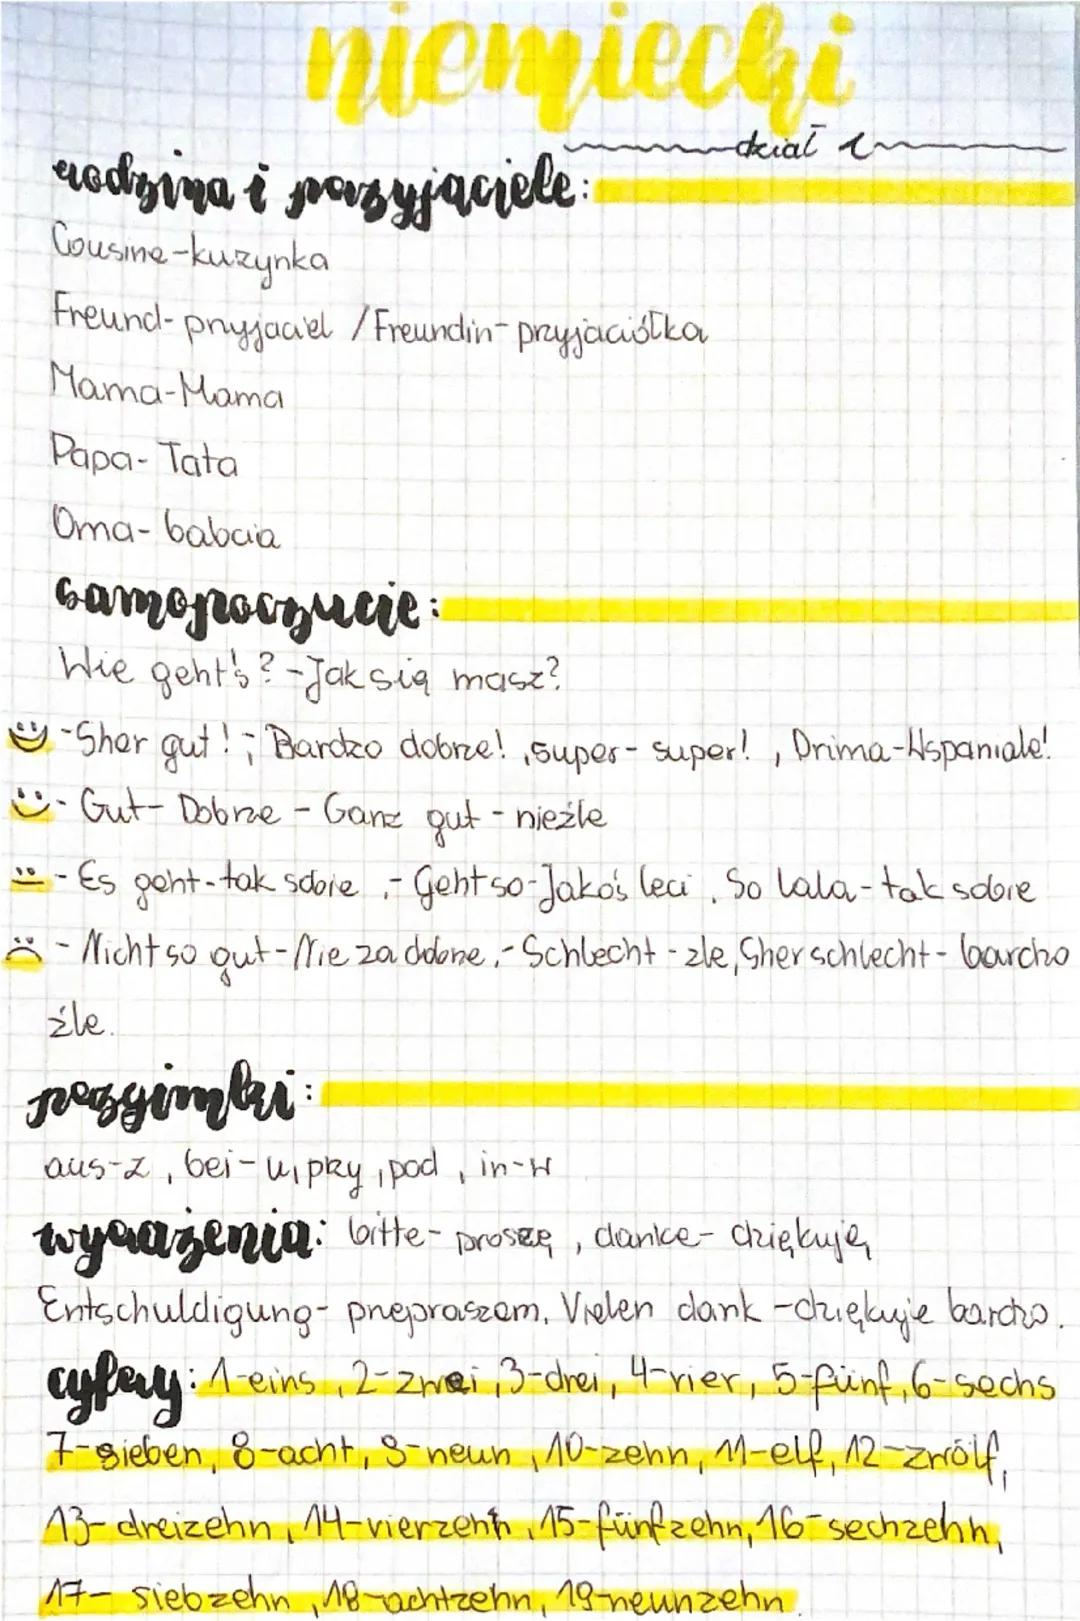 niemiecki
dział 1
rodzina i przyjaciele:
Cousine-kuzynka
Freund-przyjaciel / Freundin-przyjaciółka
Mama-Mama
Papa-Tata
Oma-babcia
samopoczucie:
Wie geht's? -Jak się masz?
-Sher gut! ; Bardzo dobrze! , super- super! , Prima-Wspaniale!
- Gut- Dobrze - Ganz gut - nieźle
- Es geht-tak sobie ,- Geht so-Jakoś leci , So lala-tak sobie
- Nicht so gut-Nie za dobrze ,- Schlecht -źle, Sher schlecht- bardzo
źle.
przyimki:
aus-z , bei-u, przy, pod , in-w
wyrażenia: bitte- proszę , danke- dziękuję,
Entschuldigung- przepraszam, Vielen dank -dziękuje bardzo.
cyfery: 1-eins , 2-zwei , 3-drei, 4-vier, 5-fünf, 6-sechs
7-sieben, 8-acht, 9-neun , 10-zehn, 11-elf, 12-zwölf,
13-dreizehn , 14-vierzehn , 15-fünfzehn, 16-sechzehn,
17- siebzehn , 18-achtzehn, 19-neunzehn